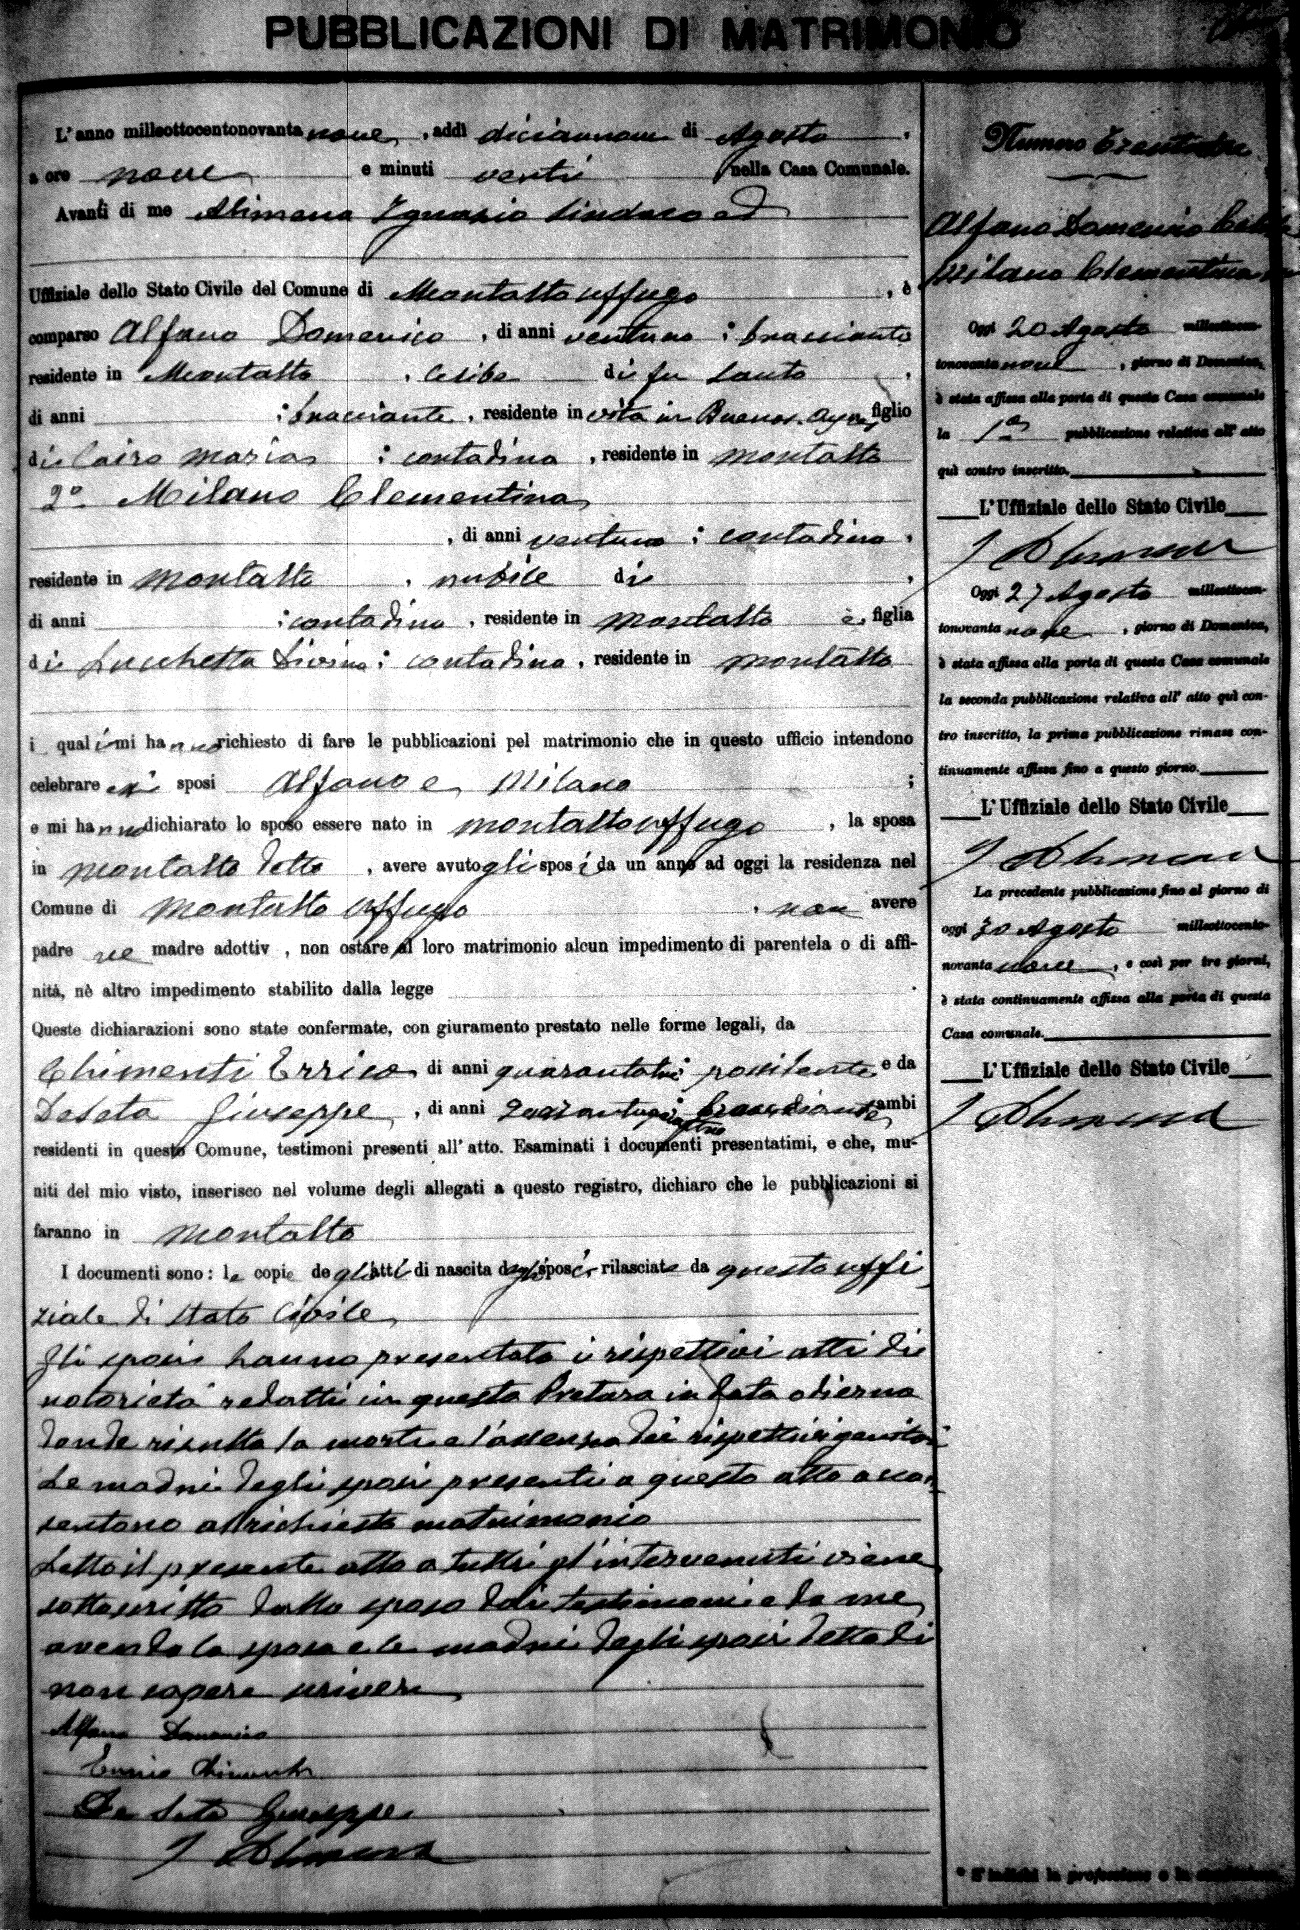 PUBBLICAZIONI DI MATRIMONIO
L'anno milleottocentonovanta nove, addì diciannove di Agosto,
a ore nove e minuti venti nella Casa Comunale.
Avanti di me Alimena Ignazio Sindaco ed
Uffiziale dello Stato Civile del Comune di Montalto uffugo, è
comparso Alfano Domenico, di anni ventuno; bracciante
residente in Montalto, celibe di fu Santo,
di anni ; bracciante, residente in vita in Buenos-Ayres, figlio
di Cairo Maria ; contadina, residente in Montalto
2º Milano Clementina
, di anni ventuno ; contadina,
residente in Montalto, nubile di ,
di anni ; contadina, residente in Montalto e, figlia
di Lucchetta Divina; contadina, residente in Montalto
i quali mi hanno richiesto di fare le pubblicazioni pel matrimonio che in questo ufficio intendono
celebrare essi sposi Alfano e Milano ;
e mi hanno dichiarato lo sposo essere nato in Montalto uffugo, la sposa
in Montalto detto, avere avuto gli sposi da un anno ad oggi la residenza nel
Comune di Montalto uffugo, non avere
padre ne madre adottiv , non ostare al loro matrimonio alcun impedimento di parentela o di affi-
nità, nè altro impedimento stabilito dalla legge .
Queste dichiarazioni sono state confermate, con giuramento prestato nelle forme legali, da
Chimenti Errico di anni quarantatre; possidente e da
Deseta Giuseppe, di anni ambi
residenti in questo Comune, testimoni presenti all'atto. Esaminati i documenti presentatimi, e che, mu-
niti del mio visto, inserisco nel volume degli allegati a questo registro, dichiaro che le pubblicazioni si
faranno in Montalto
I documenti sono: le copie degli atti di nascita degli sposi, rilasciate da questo uffi
ziale di Stato Civile
Gli sposi hanno presentato i rispettivi atti di
notorietà redatti in questa Pretura in data odierna
donde risulta la morte e l'assenza dei rispettivi genitori
Le madri degli sposi presenti a questo atto accon
sentono al richiesto matrimonio
Letto il presente atto a tutti gl'intervenuti viene
sottoscritto dallo sposo dai testimoni e da me
avendo la sposa e le madri degli sposi detto di
non sapere scrivere
Alfano Domenico
Errico Chimenti
De Seta Giuseppe
I Alimena
Numero
Alfano Domenico
Milano Clementina
Oggi 20 Agosto milleottocen-
tonovanta nove, giorno di Domenica,
è stata affissa alla porta di questa Casa comunale
la 1a pubblicazione relativa all'atto
quì contro inscritto.
L'Uffiziale dello Stato Civile
I Alimena
Oggi 27 Agosto milleottocen-
tonovanta nove, giorno di Domenica,
è stata affissa alla porta di questa Casa comunale
la seconda pubblicazione relativa all'atto quì con-
tro inscritto, la prima pubblicazione rimase con-
tinuamente affissa fino a questo giorno.
L'Uffiziale dello Stato Civile
I Alimena
La precedente pubblicazione fino al giorno di
oggi 30 Agosto milleottocento-
novanta nove, e così per tre giorni,
è stata continuamente affissa alla porta di questa
Casa comunale.
L'Uffiziale dello Stato Civile
I Alimena
* S'indichi la professione o la condizione.